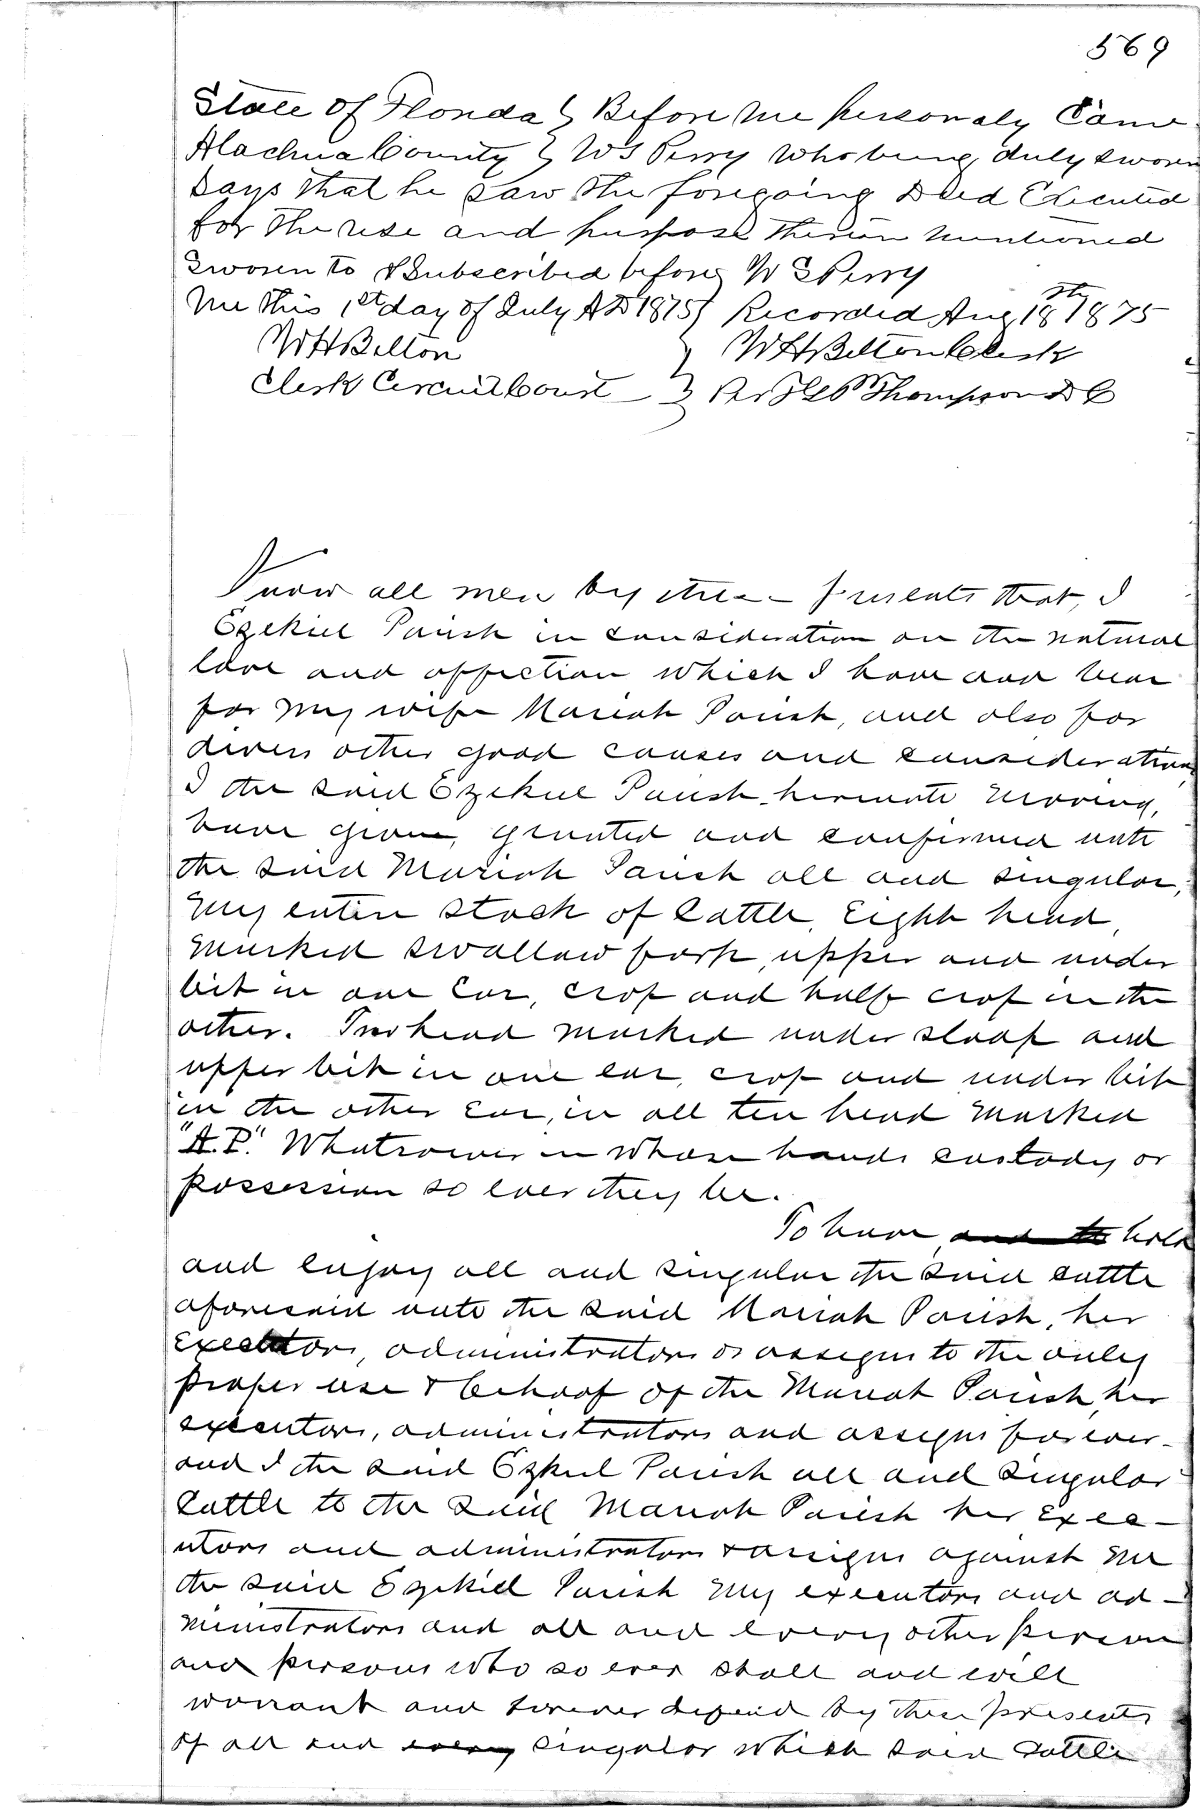 569
State of Florida } Before me personaly Came
Alachua County } W S Perry who being duly sworn
Says that he saw the foregoing Deed Executed
for the use and purpose therein mentioned
Sworen to & Subscribed before W S Perry
me this 1st day of July A D 1875 } Recorded Aug 18th 1875
W H Belton } W H Belton Clerk
Clerk Circuit Court } Per Thompson D C
Know all men by these presents that, I
Ezekiel Parish in consideration on the natural
love and affection which I have and bear
for my wife Mariah Parish, and also for
divers other good causes and considerations
I the said Ezekiel Parish hereunto moving,
have given, granted and confirmed unto
the said Mariah Parish all and singular,
My entire stock of Cattle, Eight head,
marked swallow fork, upper and under
bit in one Ear, crop and half crop in the
other. Two head marked under sloap and
upper bit in one ear, crop and under bit
in the other Ear, in all ten head marked
"A.P." Whatsoever in whose hands custody or
possession so ever they be.
To have, and to hold
and enjoy all and singular the said cattle
aforesaid unto the said Mariah Parish, her
Executors, administrators or assigns to the only
proper use & behoof of the Mariah Parish, her
executors, administrators and assigns forever.
and I the said Ezkiel Parish all and singular
Cattle to the said Mariah Parish her Exec-
utors and administrators & assigns against me
the said Ezekiel Parish My executors and ad-
ministrators and all and every other person
and persons who so ever shall and will
warrant and forever defend by these presents
of all and every singular which said Cattle